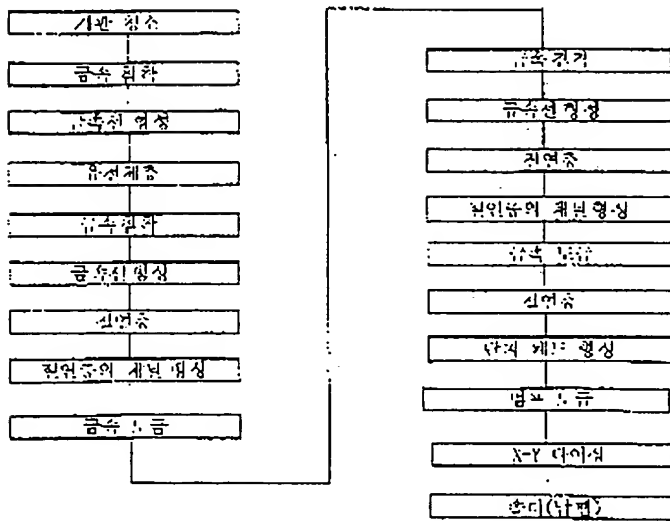 기판 청소
금속 침착
금속선 형성
유전체층
금속침착
금속선형성
절연층
절연층의 채널 형성
금속 도금
금속선형성
절연층
절연층의 채널형성
금속 도금
절연층
단자 패드 형성
범프 도금
X-Y 다이싱